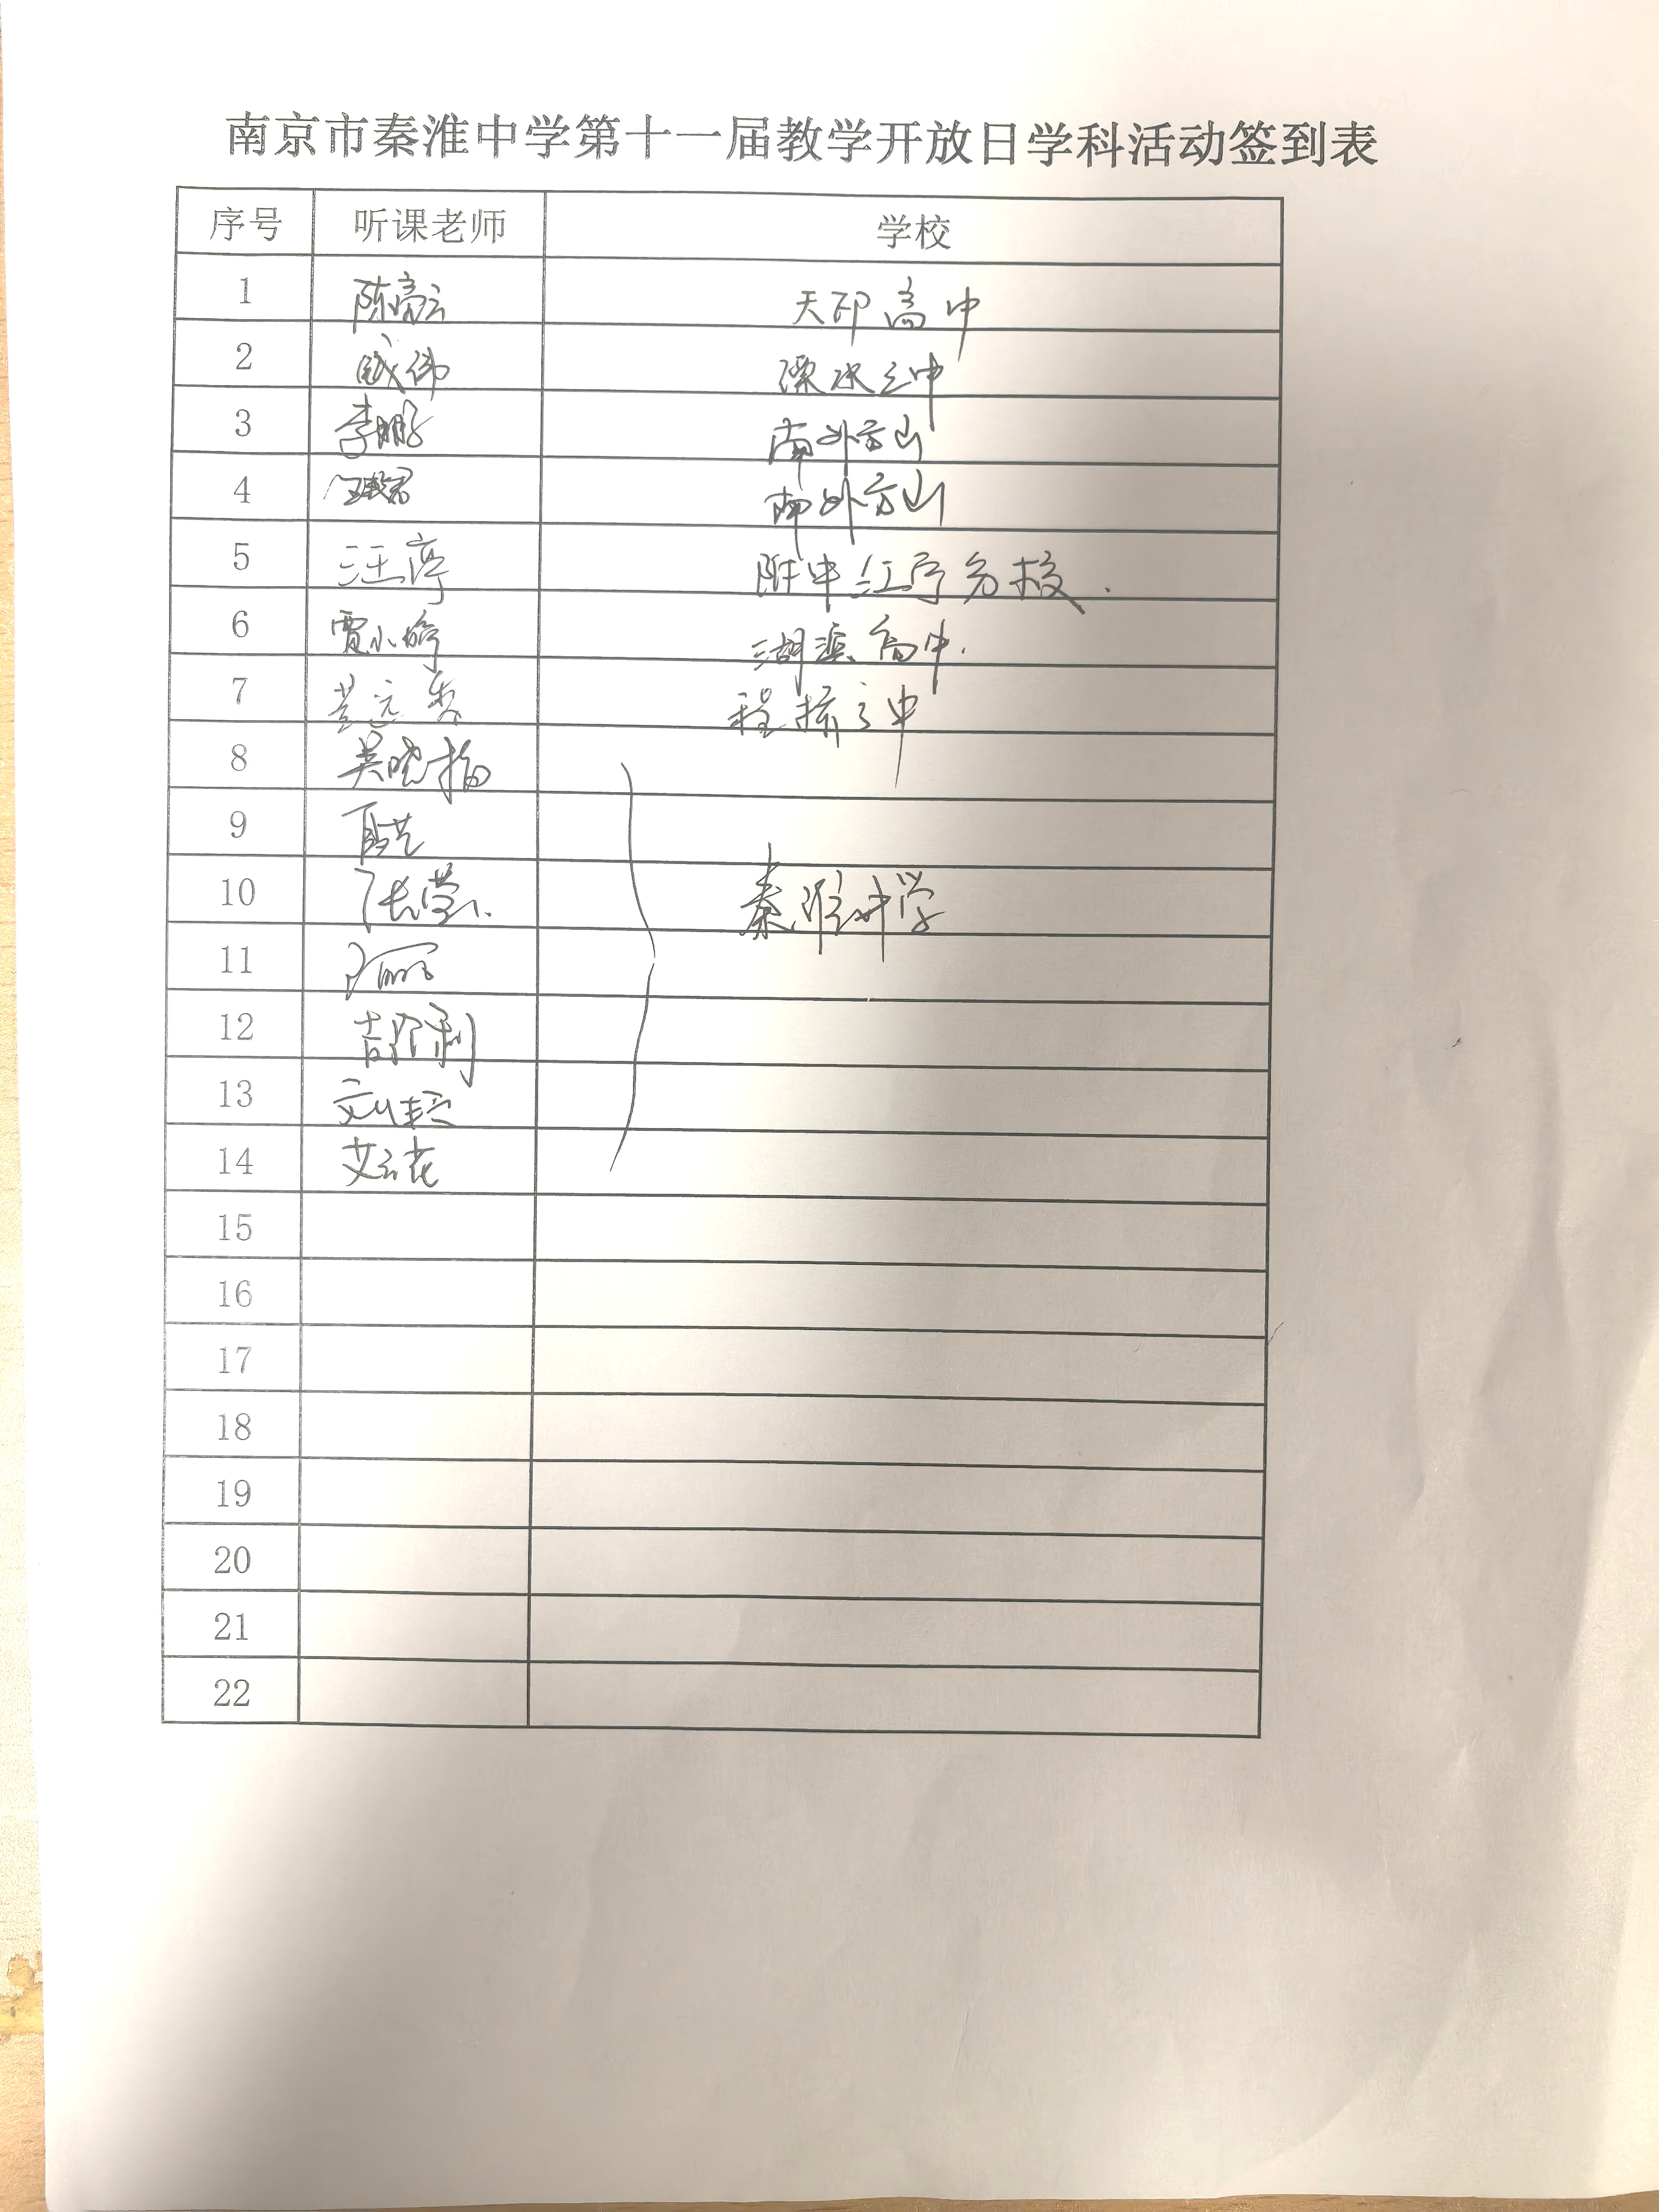 南京市秦淮中学第十一届教学开放日学科活动签到表
序号 听课老师 学校
1 陈亮云 天印高中
2 伟 溧水三中
3 李鹏 南外方山
4 君 南外方山
5 汪婷 附中江宁分校.
6 贾小婷 湖滨高中.
7 远 程桥高中
8 吴晓梅
9
10 张莹. 秦淮中学
11 丽
12 吉 利
13 刘
14 艾云花
15
16
17
18
19
20
21
22